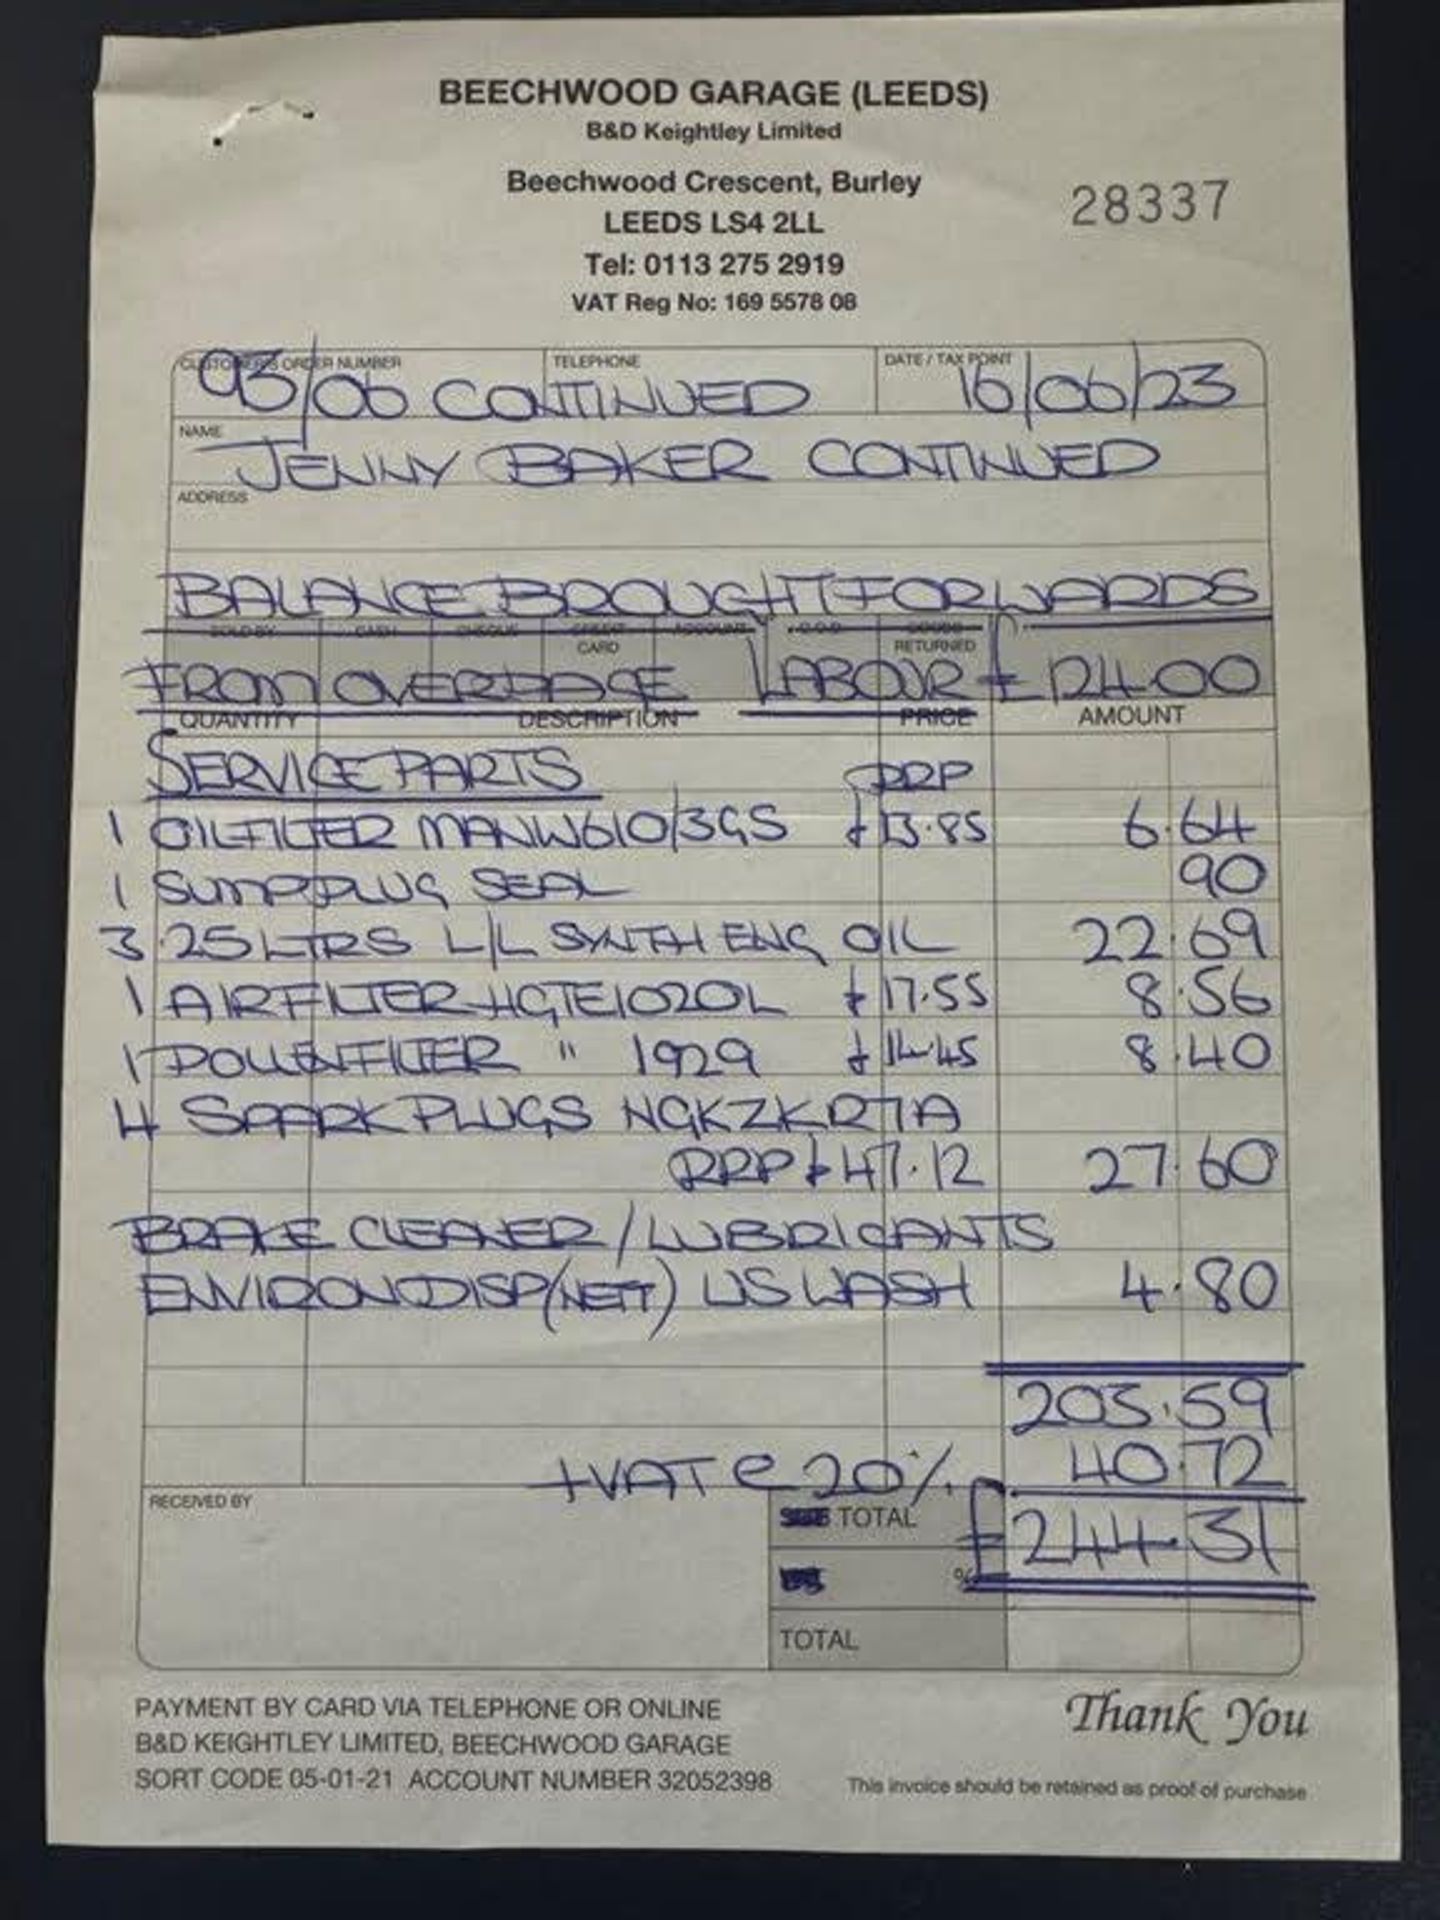 BEECHWOOD GARAGE (LEEDS)
B&D Keightley Limited
Beechwood Crescent, Burley
LEEDS LS4 2LL
28337
Tel: 0113 275 2919
VAT Reg No: 169 5578 08
CUSTOMER'S ORDER NUMBER TELEPHONE DATE / TAX POINT
93/06 CONTINUED 16/06/23
NAME
JENNY BAKER CONTINUED
ADDRESS
BALANCE BROUGHT FORWARDS
SOLD BY CASH CHEQUE CREDIT CARD ACCOUNT C.O.D. GOODS RETURNED
FROM OVERPAGE LABOUR £124.00
QUANTITY DESCRIPTION PRICE AMOUNT
SERVICE PARTS RRP
1 OILFILTER MANW610/3GS £13.85 6.64
1 SUMPPLUG SEAL 90
3.25 LTRS L/L SYNTH ENG OIL 22.69
1 AIRFILTER HGTE1020L £17.55 8.56
1 POLLENFILTER " 1929 £14.45 8.40
4 SPARK PLUGS NGKZKR7A
RRP £47.12 27.60
BRAKE CLEANER/LUBRICANTS
ENVIRONDISP(NETT) U/S WASH 4.80
203.59
+VAT @ 20% 40.72
RECEIVED BY
TOTAL £244.31
%
TOTAL
PAYMENT BY CARD VIA TELEPHONE OR ONLINE
B&D KEIGHTLEY LIMITED, BEECHWOOD GARAGE
SORT CODE 05-01-21 ACCOUNT NUMBER 32052398
Thank You
This invoice should be retained as proof of purchase